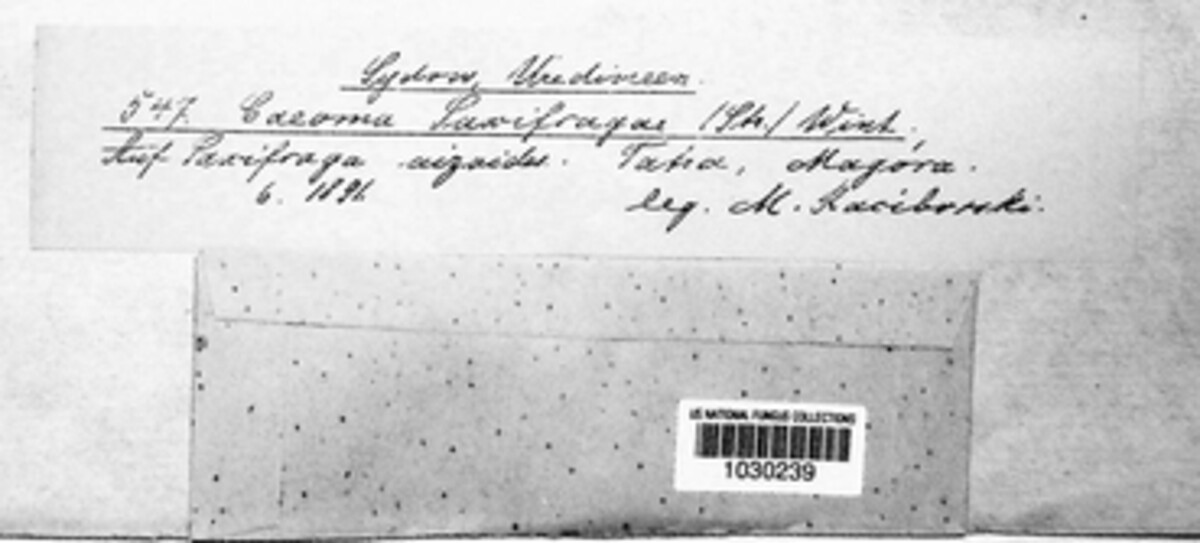 Sydow, Uredineen.
547. Caeoma Saxifragae (Str.) Wint.,
Auf Saxifraga aizoides. Tatra, Magóra.
6. 1891. leg. M. Raciborski.
US NATIONAL FUNGUS COLLECTIONS
1030239